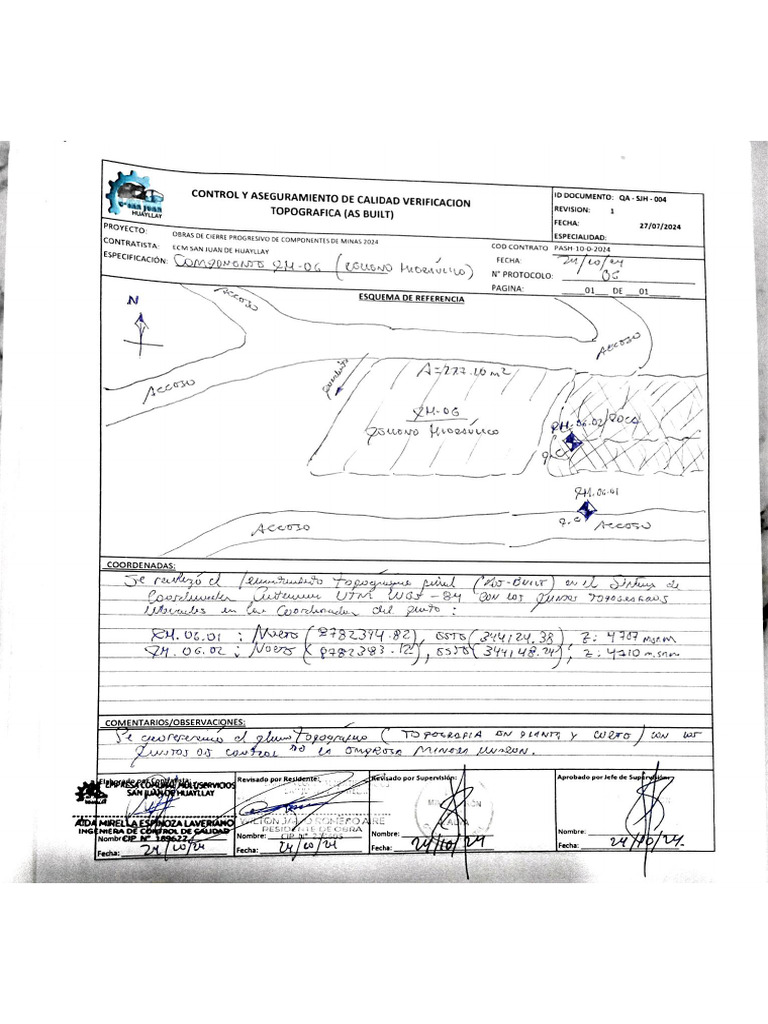 SAN JUAN
HUAYLLAY
CONTROL Y ASEGURAMIENTO DE CALIDAD VERIFICACION
TOPOGRAFICA (AS BUILT)
ID DOCUMENTO: QA - SJH - 004
REVISION: 1
FECHA: 27/07/2024
ESPECIALIDAD:
PROYECTO: OBRAS DE CIERRE PROGRESIVO DE COMPONENTES DE MINAS 2024
CONTRATISTA: ECM SAN JUAN DE HUAYLLAY
COD CONTRATO PASH-10-0-2024
ESPECIFICACIÓN: COMPONENTE RH-06 (RELLENO HIDRÁULICO)
FECHA: 24/10/24
N° PROTOCOLO: 06
PAGINA: 01 DE 01
ESQUEMA DE REFERENCIA
N
ACCESO
ACCESO
ACCESO
A=227.10 m2
RH-06
RELLENO HIDRÁULICO
RH.06.02/ROCA
RH.06.01
ACCESO
ACCESO
COORDENADAS:
Se realizó el levantamiento topográfico final (AS-BUILT) en el Sistema de
Coordenadas UTM WGS-84 CON LOS PUNTOS TOPOGRAFICOS
en las Coordenadas del punto:
RH.06.01: NORTE (8782394.82), ESTE (344124.38), Z: 4707 m.s.n.m
RH.06.02: NORTE (8782383.12), ESTE (344148.24), Z: 4710 m.s.n.m
COMENTARIOS/OBSERVACIONES:
Se georeferenció el plano topográfico (TOPOGRAFIA EN PLANTA Y CORTE) CON LOS
PUNTOS DE CONTROL DE LA EMPRESA MINERA
Elaborado por Contratista:
EMPRESA COMUNAL MULTISERVICIOS
SAN JUAN DE HUAYLLAY
AIDA MIRELLA ESPINOZA LAVERIANO
INGENIERA DE CONTROL DE CALIDAD
Nombre: CIP N° 189627
Fecha: 24/10/24
Revisado por Residente:
RESIDENTE DE OBRA
Nombre:
Fecha: 24/10/24
Revisado por Supervisión:
Nombre:
Fecha: 24/10/24
Aprobado por Jefe de Supervisión:
Nombre:
Fecha: 24/10/24